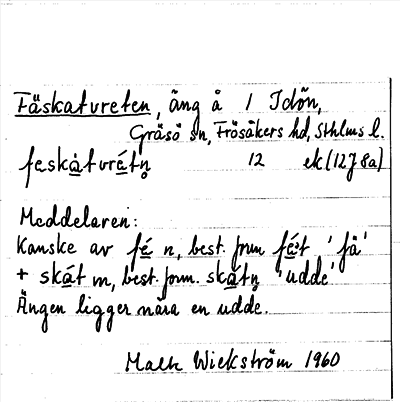 Fäskatureten, äng å 1 Idön,
Gräsö sn, Frösåkers hd, Sthlms l.
feskàturétn̥ 12 ek (12J8a)
Meddelaren:
Kanske av fé n, best. form fé:t 'fä'
+ skát m, best. form. skátn̥ 'udde'
Ängen ligger nära en udde.
Wickström 1960